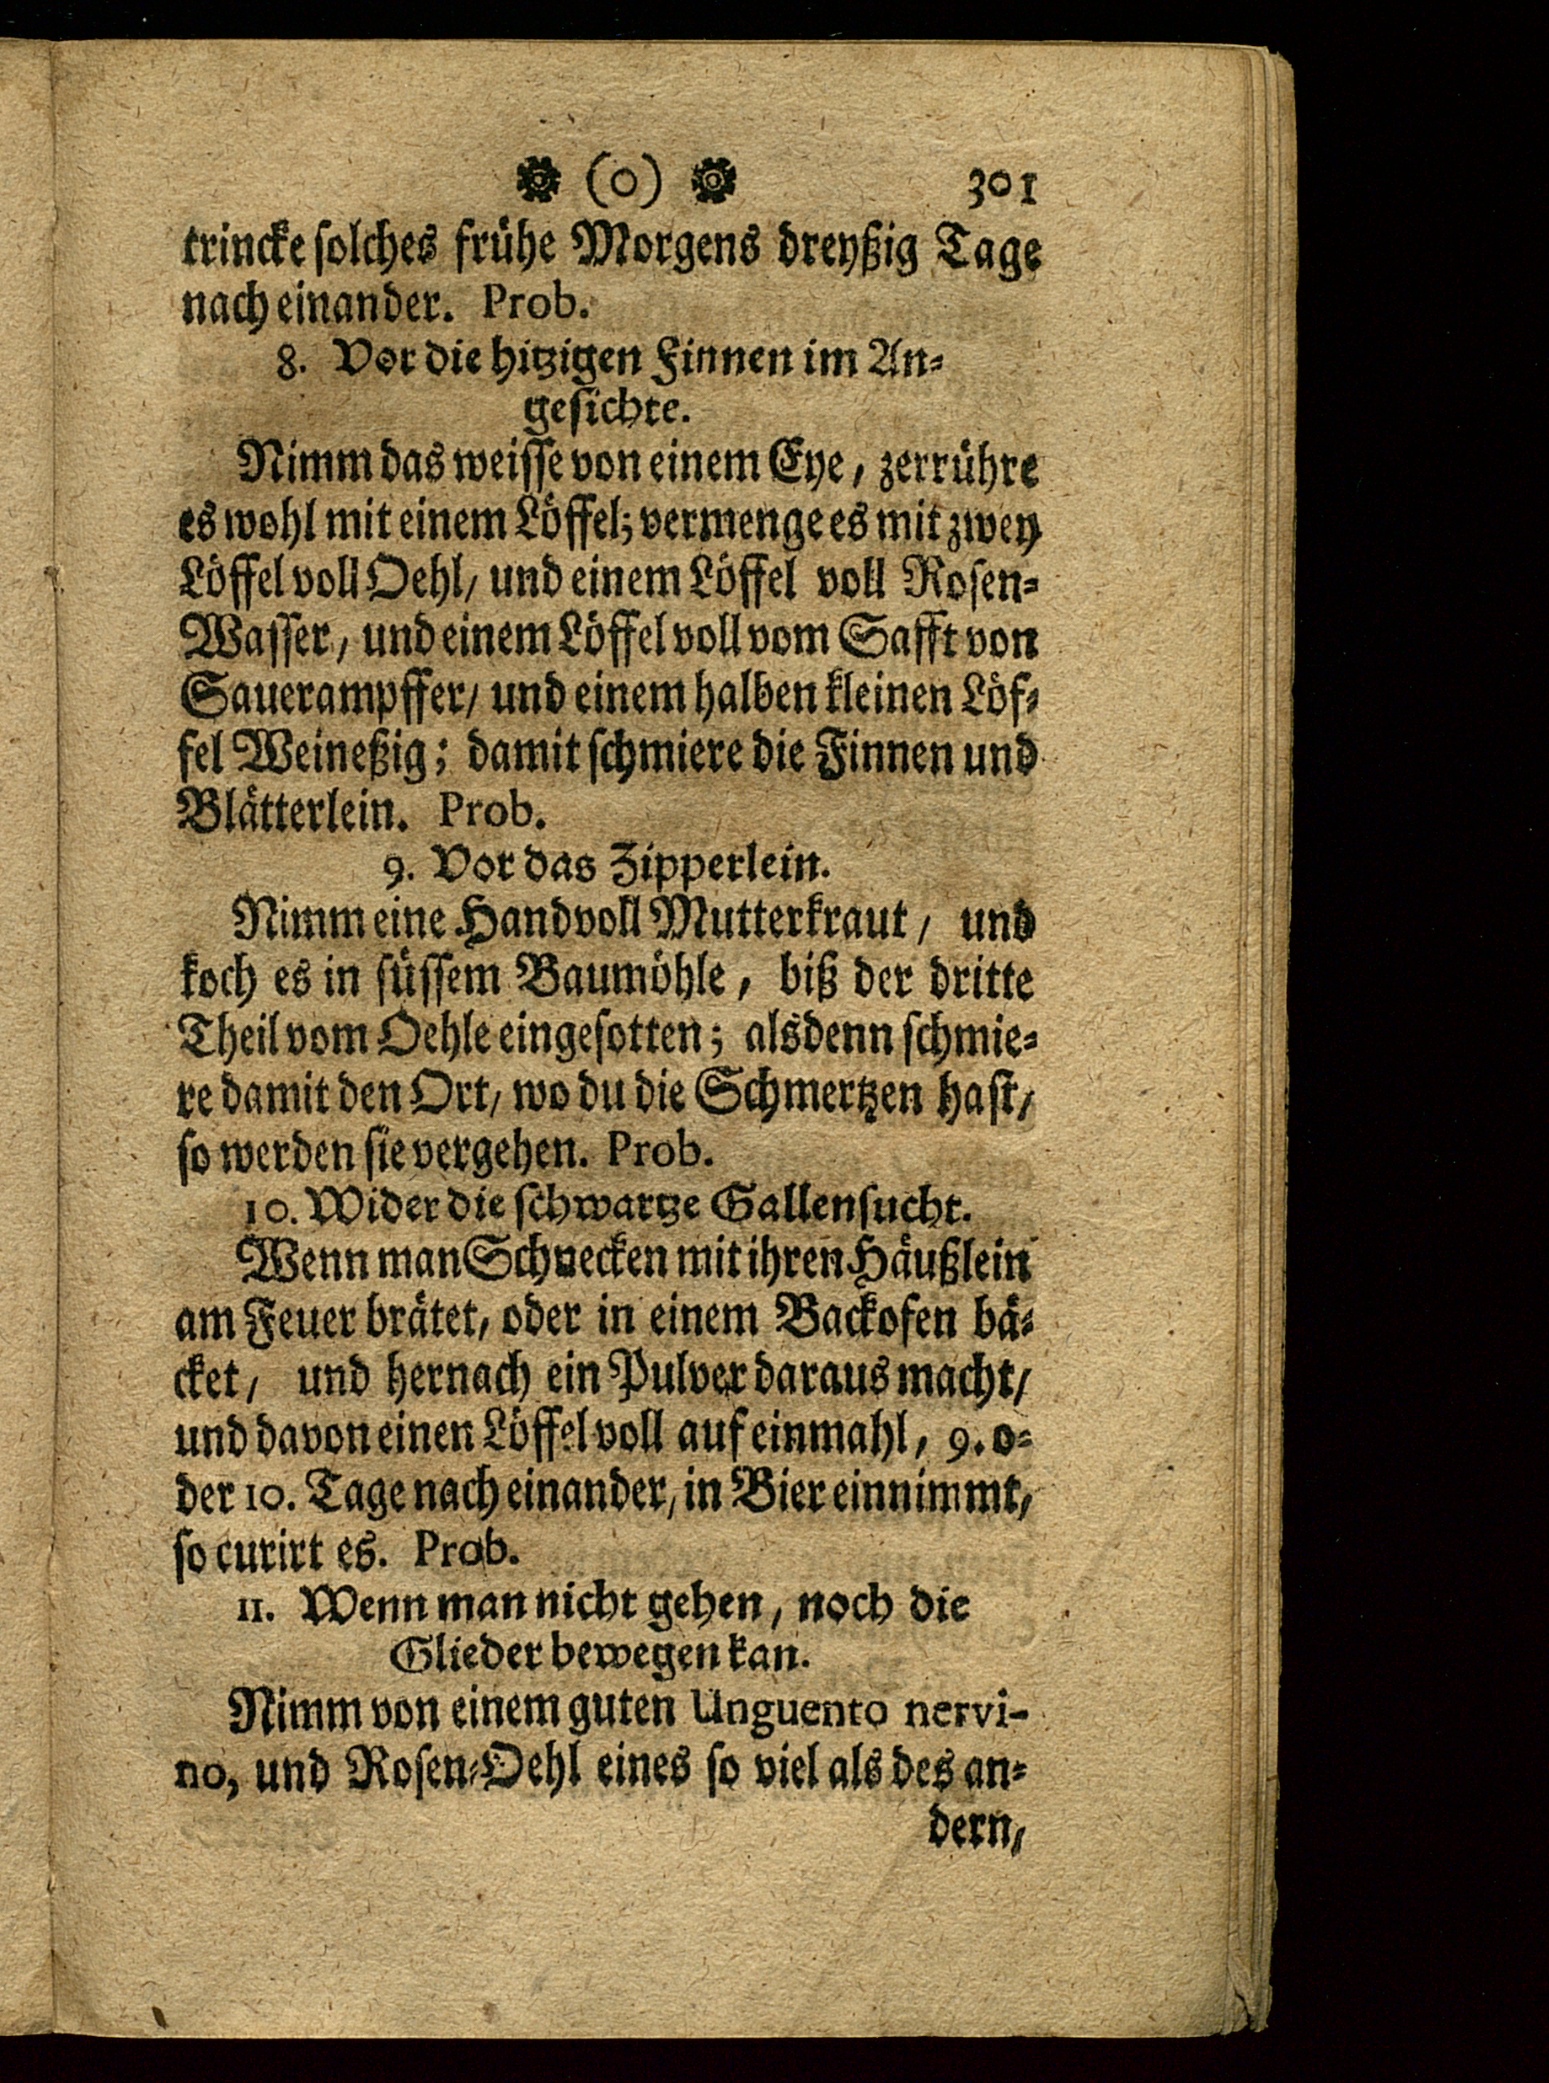 (0) 301
trincke solches frühe Morgens dreyßig Tage
nach einander. Prob.
8. Vor die hitzigen Finnen im An-
gesichte.
Nimm das weisse von einem Eye, zerrühre
es wohl mit einem Löffel; vermenge es mit zwey
Löffel voll Oehl/ und einem Löffel voll Rosen-
Wasser, und einem Löffel voll vom Safft von
Sauerampffer/ und einem halben kleinen Löf-
fel Weineßig; damit schmiere die Finnen und
Blätterlein. Prob.
9. Vor das Zipperlein.
Nimm eine Handvoll Mutterkraut, und
koch es in süssem Baumöhle, biß der dritte
Theil vom Oehle eingesotten; alsdenn schmie-
re damit den Ort, wo du die Schmertzen hast/
so werden sie vergehen. Prob.
10. Wider die schwartze Gallensucht.
Wenn man Schnecken mit ihren Häußlein
am Feuer brätet, oder in einem Backofen bä-
cket, und hernach ein Pulver daraus macht/
und davon einen Löffel voll auf einmahl, 9. o-
der 10. Tage nach einander, in Bier einnimmt,
so curirt es. Prob.
11. Wenn man nicht gehen, noch die
Glieder bewegen kan.
Nimm von einem guten Unguento nervi-
no, und Rosen-Oehl eines so viel als des an-
dern,